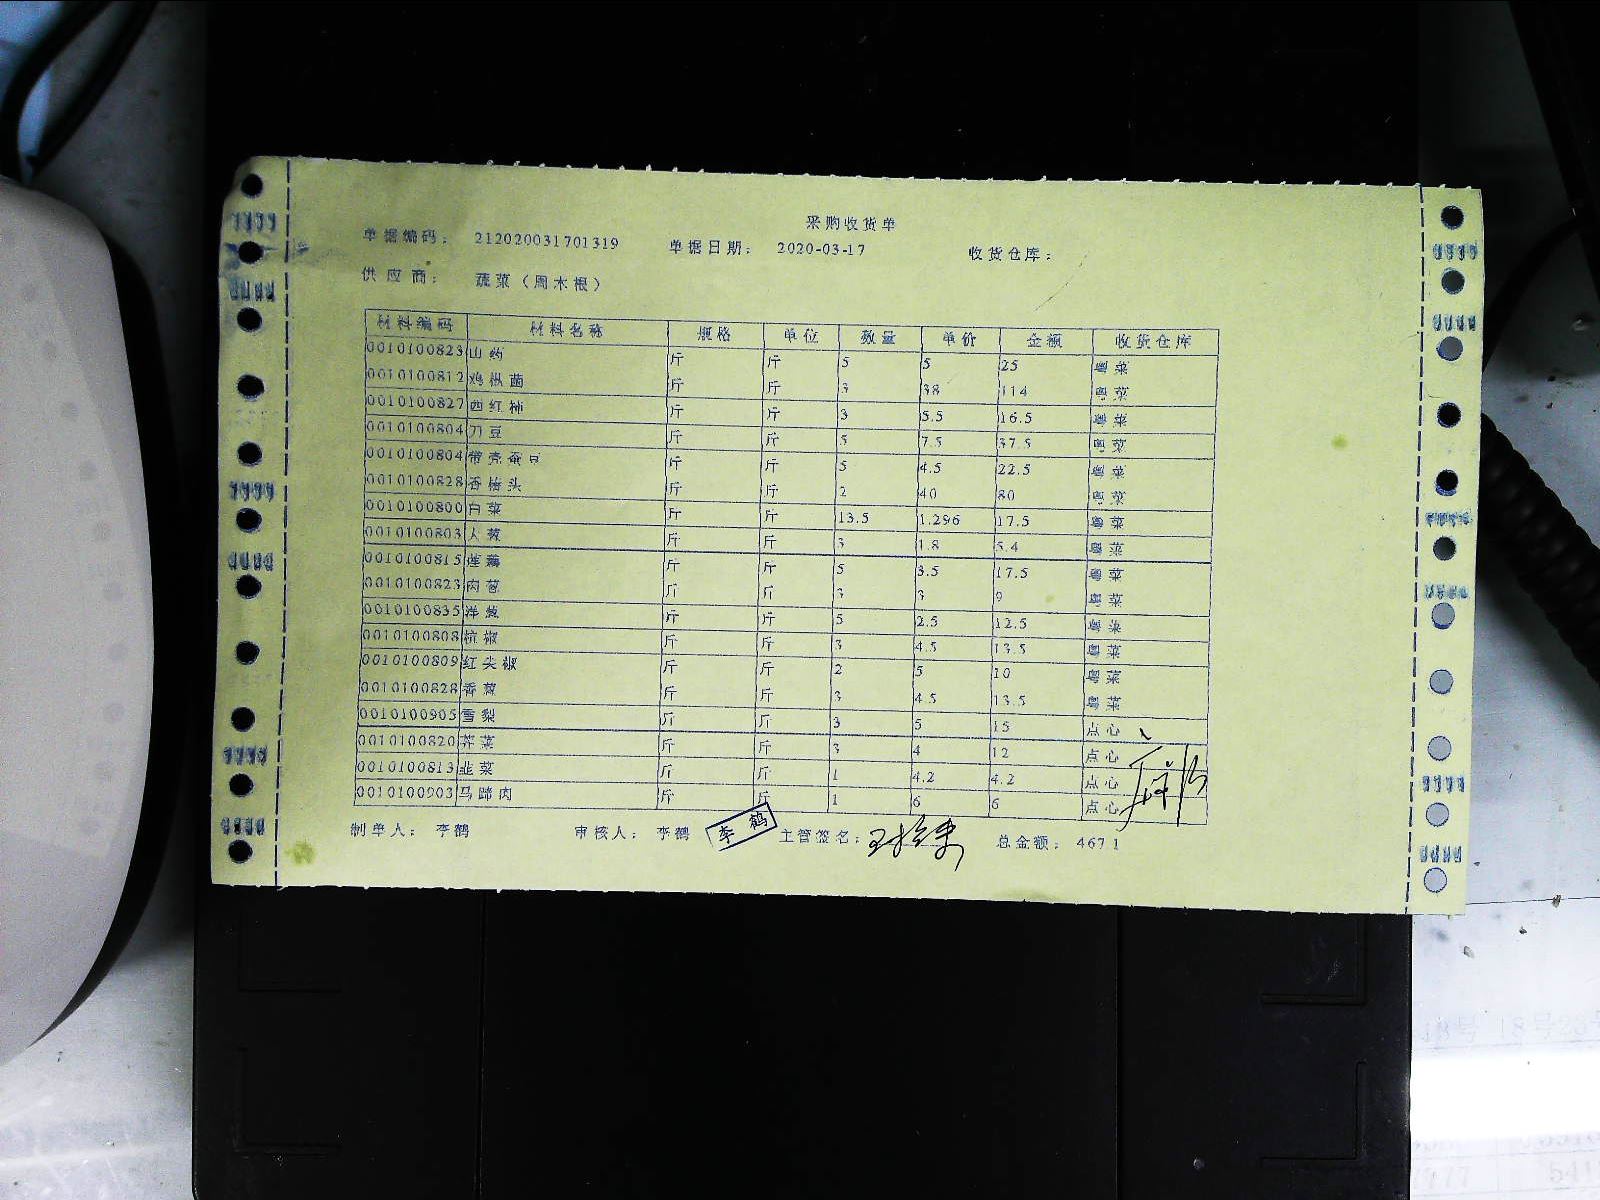 采购收货单
单据编码： 212020031701319 单据日期： 2020-03-17 收货仓库：
供应商： 蔬菜（周木根）
材料编码 材料名称 规格 单位 数量 单价 金额 收货仓库
0010100823 山药 斤 斤 5 5 25 粤菜
0010100812 鸡枞菌 斤 斤 3 38 114 粤菜
0010100827 西红柿 斤 斤 3 5.5 16.5 粤菜
0010100804 刀豆 斤 斤 5 7.5 37.5 粤菜
0010100804 带壳蚕豆 斤 斤 5 4.5 22.5 粤菜
0010100828 香椿头 斤 斤 2 40 80 粤菜
0010100800 白菜 斤 斤 13.5 1.296 17.5 粤菜
0010100803 大葱 斤 斤 3 1.8 5.4 粤菜
0010100815 莲藕 斤 斤 5 3.5 17.5 粤菜
0010100823 内葱 斤 斤 3 3 9 粤菜
0010100835 洋葱 斤 斤 5 2.5 12.5 粤菜
0010100808 杭椒 斤 斤 3 4.5 13.5 粤菜
0010100809 红尖椒 斤 斤 2 5 10 粤菜
0010100828 香葱 斤 斤 3 4.5 13.5 粤菜
0010100905 雪梨 斤 斤 3 5 15 点心
0010100820 荠菜 斤 斤 3 4 12 点心
0010100813 韭菜 斤 斤 1 4.2 4.2 点心
0010100903 马蹄肉 斤 斤 1 6 6 点心
制单人： 李鹤 审核人： 李鹤 李鹤 主管签名： 总金额： 467.1